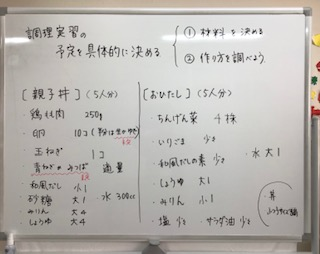 調理実習の
予定を具体的に決める
① 材料を決める
② 作り方を調べよう
[親子丼] (5人分)
・鶏もも肉 250g
・卵 10コ
・玉ねぎ 1コ
・青ねぎorみつば 適量
・和風だし 小1
・砂糖 大1
・みりん 大4
・しょうゆ 大4
水 300cc
[おひたし] (5人分)
・ちんげん菜 4株
・いりごま 少々
・和風だしの素 少々
・しょうゆ 大1
・みりん 小1
・水 大1
・塩 少々 ・サラダ油 少々
・丼